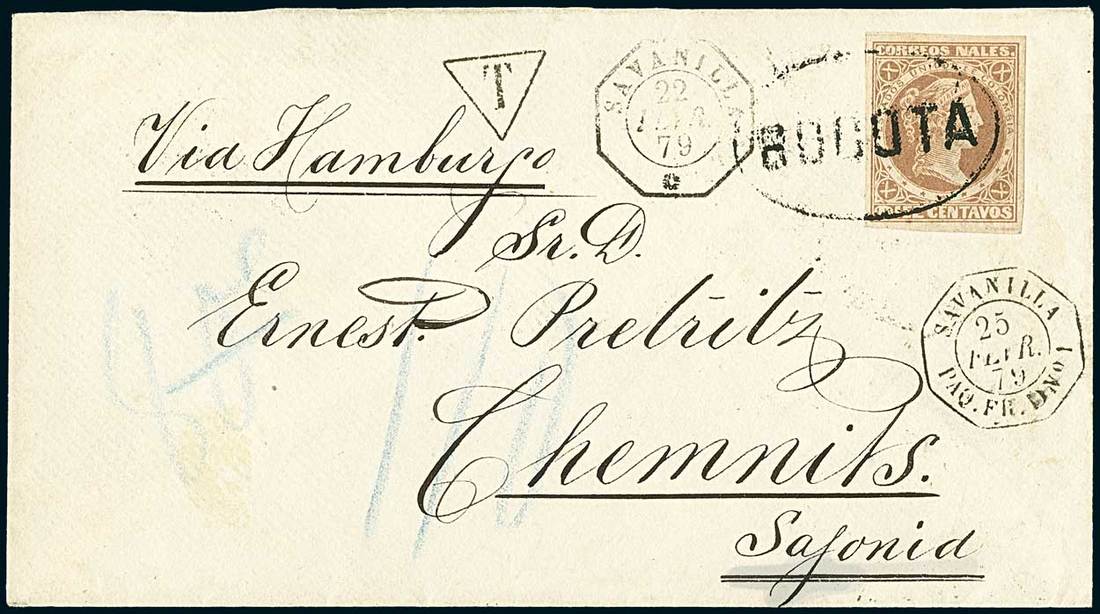 T
SAVANILLA
22
FEVR.
79
BOGOTÁ
CORREOS NALES.
CENTAVOS
Via Hamburgo
Sr. D.
Ernest. Pretzitz
Chemnits.
Sajonia
SAVANILLA
25
FEVR.
79
PAQ. FR. D No 1